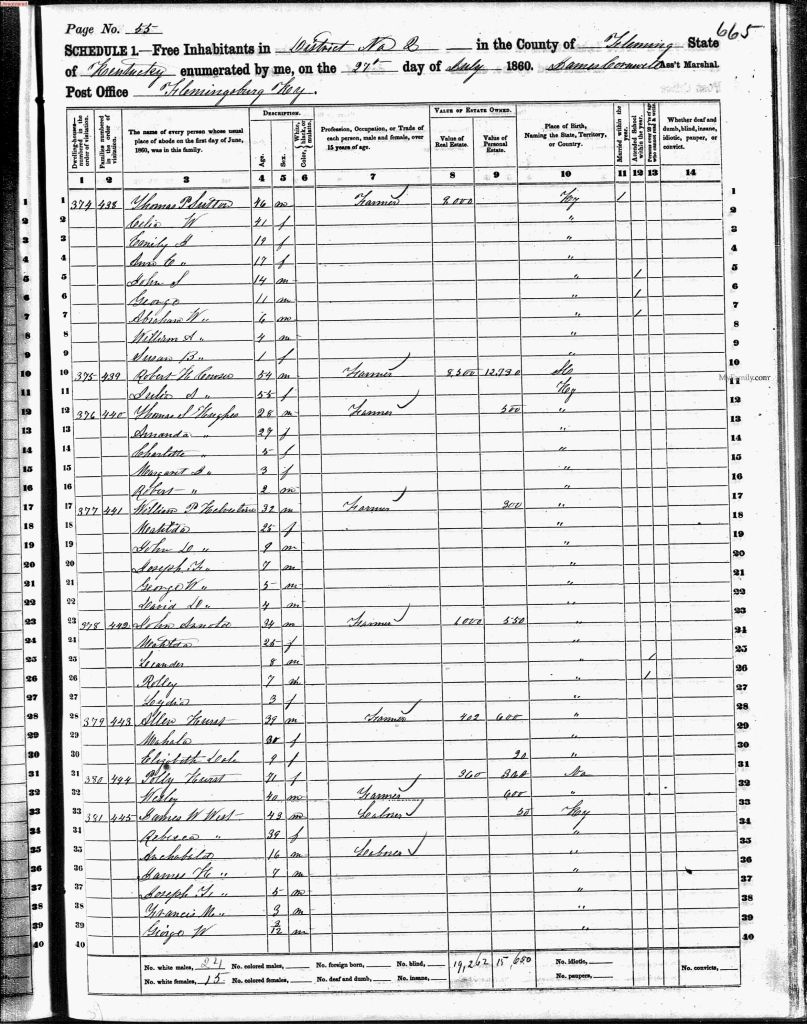 Page No. 55
665
SCHEDULE 1.—Free Inhabitants in District No 2 in the County of Fleming State
of Kentucky enumerated by me, on the 27th day of July 1860. James Ass't Marshal.
Post Office Flemingsburg Ky.
Dwelling-houses numbered in the order of visitation. Families numbered in the order of visitation. The name of every person whose usual place of abode on the first day of June, 1860, was in this family. DESCRIPTION. Age. Sex. Color, White, black, or mulatto. Profession, Occupation, or Trade of each person, male and female, over 15 years of age. VALUE OF ESTATE OWNED. Value of Real Estate. Value of Personal Estate. Place of Birth, Naming the State, Territory, or Country. Married within the year. Attended School within the year. Persons over 20 y'rs of age who cannot read & write. Whether deaf and dumb, blind, insane, idiotic, pauper, or convict.
1 2 3 4 5 6 7 8 9 10 11 12 13 14
1 374 438 Thomas P Sutton 46 m Farmer 8,000 Ky 1 1
2 Celia W 41 f " 2
3 Emily A 19 f " 3
4 Ann E " 17 f " 4
5 John S 14 m " 1 5
6 George 11 m " 1 6
7 Abraham W " 6 m " 1 7
8 William A " 4 m " 8
9 Susan B " 1 f " 9
10 375 439 Robert H 54 m Farmer 8,500 12,730 10
11 Julia A " 55 f Ky 11
MyFamily.com
12 376 440 Thomas S Hughes 28 m Farmer 500 " 12
13 Amanda " 27 f " 13
14 Charlotte " 5 f " 14
15 Margaret A " 3 f " 15
16 Robert " 2 m " 16
17 377 441 William P Helvestine 32 m Farmer 300 " 17
18 Matilda 25 f " 18
19 John D " 9 m " 19
20 Joseph F " 7 m " 20
21 George W " 5 m " 21
22 David D " 4 m " 22
23 378 442 John Arnold 34 m Farmer 1000 550 " 23
24 Matilda 25 f " 24
25 Leander 8 m " 1 25
26 Rolley 7 m " 1 26
27 Lydia 3 f " 27
28 379 443 Allen Hurst 39 m Farmer 402 600 " 28
29 Mahala 30 f " 29
30 Elizabeth 9 f 20 " 30
31 380 444 Polly Hurst 71 f 360 Va 31
32 Wesley 40 m Farmer 600 " 32
33 381 445 James W West 43 m Laborer 50 Ky 33
34 Rebecca " 39 f " 34
35 Archabald 16 m Laborer " 35
36 James H " 7 m " 36
37 Joseph F " 5 m " 37
38 Francis M " 3 m " 38
39 George W 3/12 m " 39
40 40
No. white males, 24 No. colored males, No. foreign born, No. blind, 19,262 15,680 No. idiotic, No. convicts,
No. white females, 15 No. colored females, No. deaf and dumb, No. insane, No. paupers,